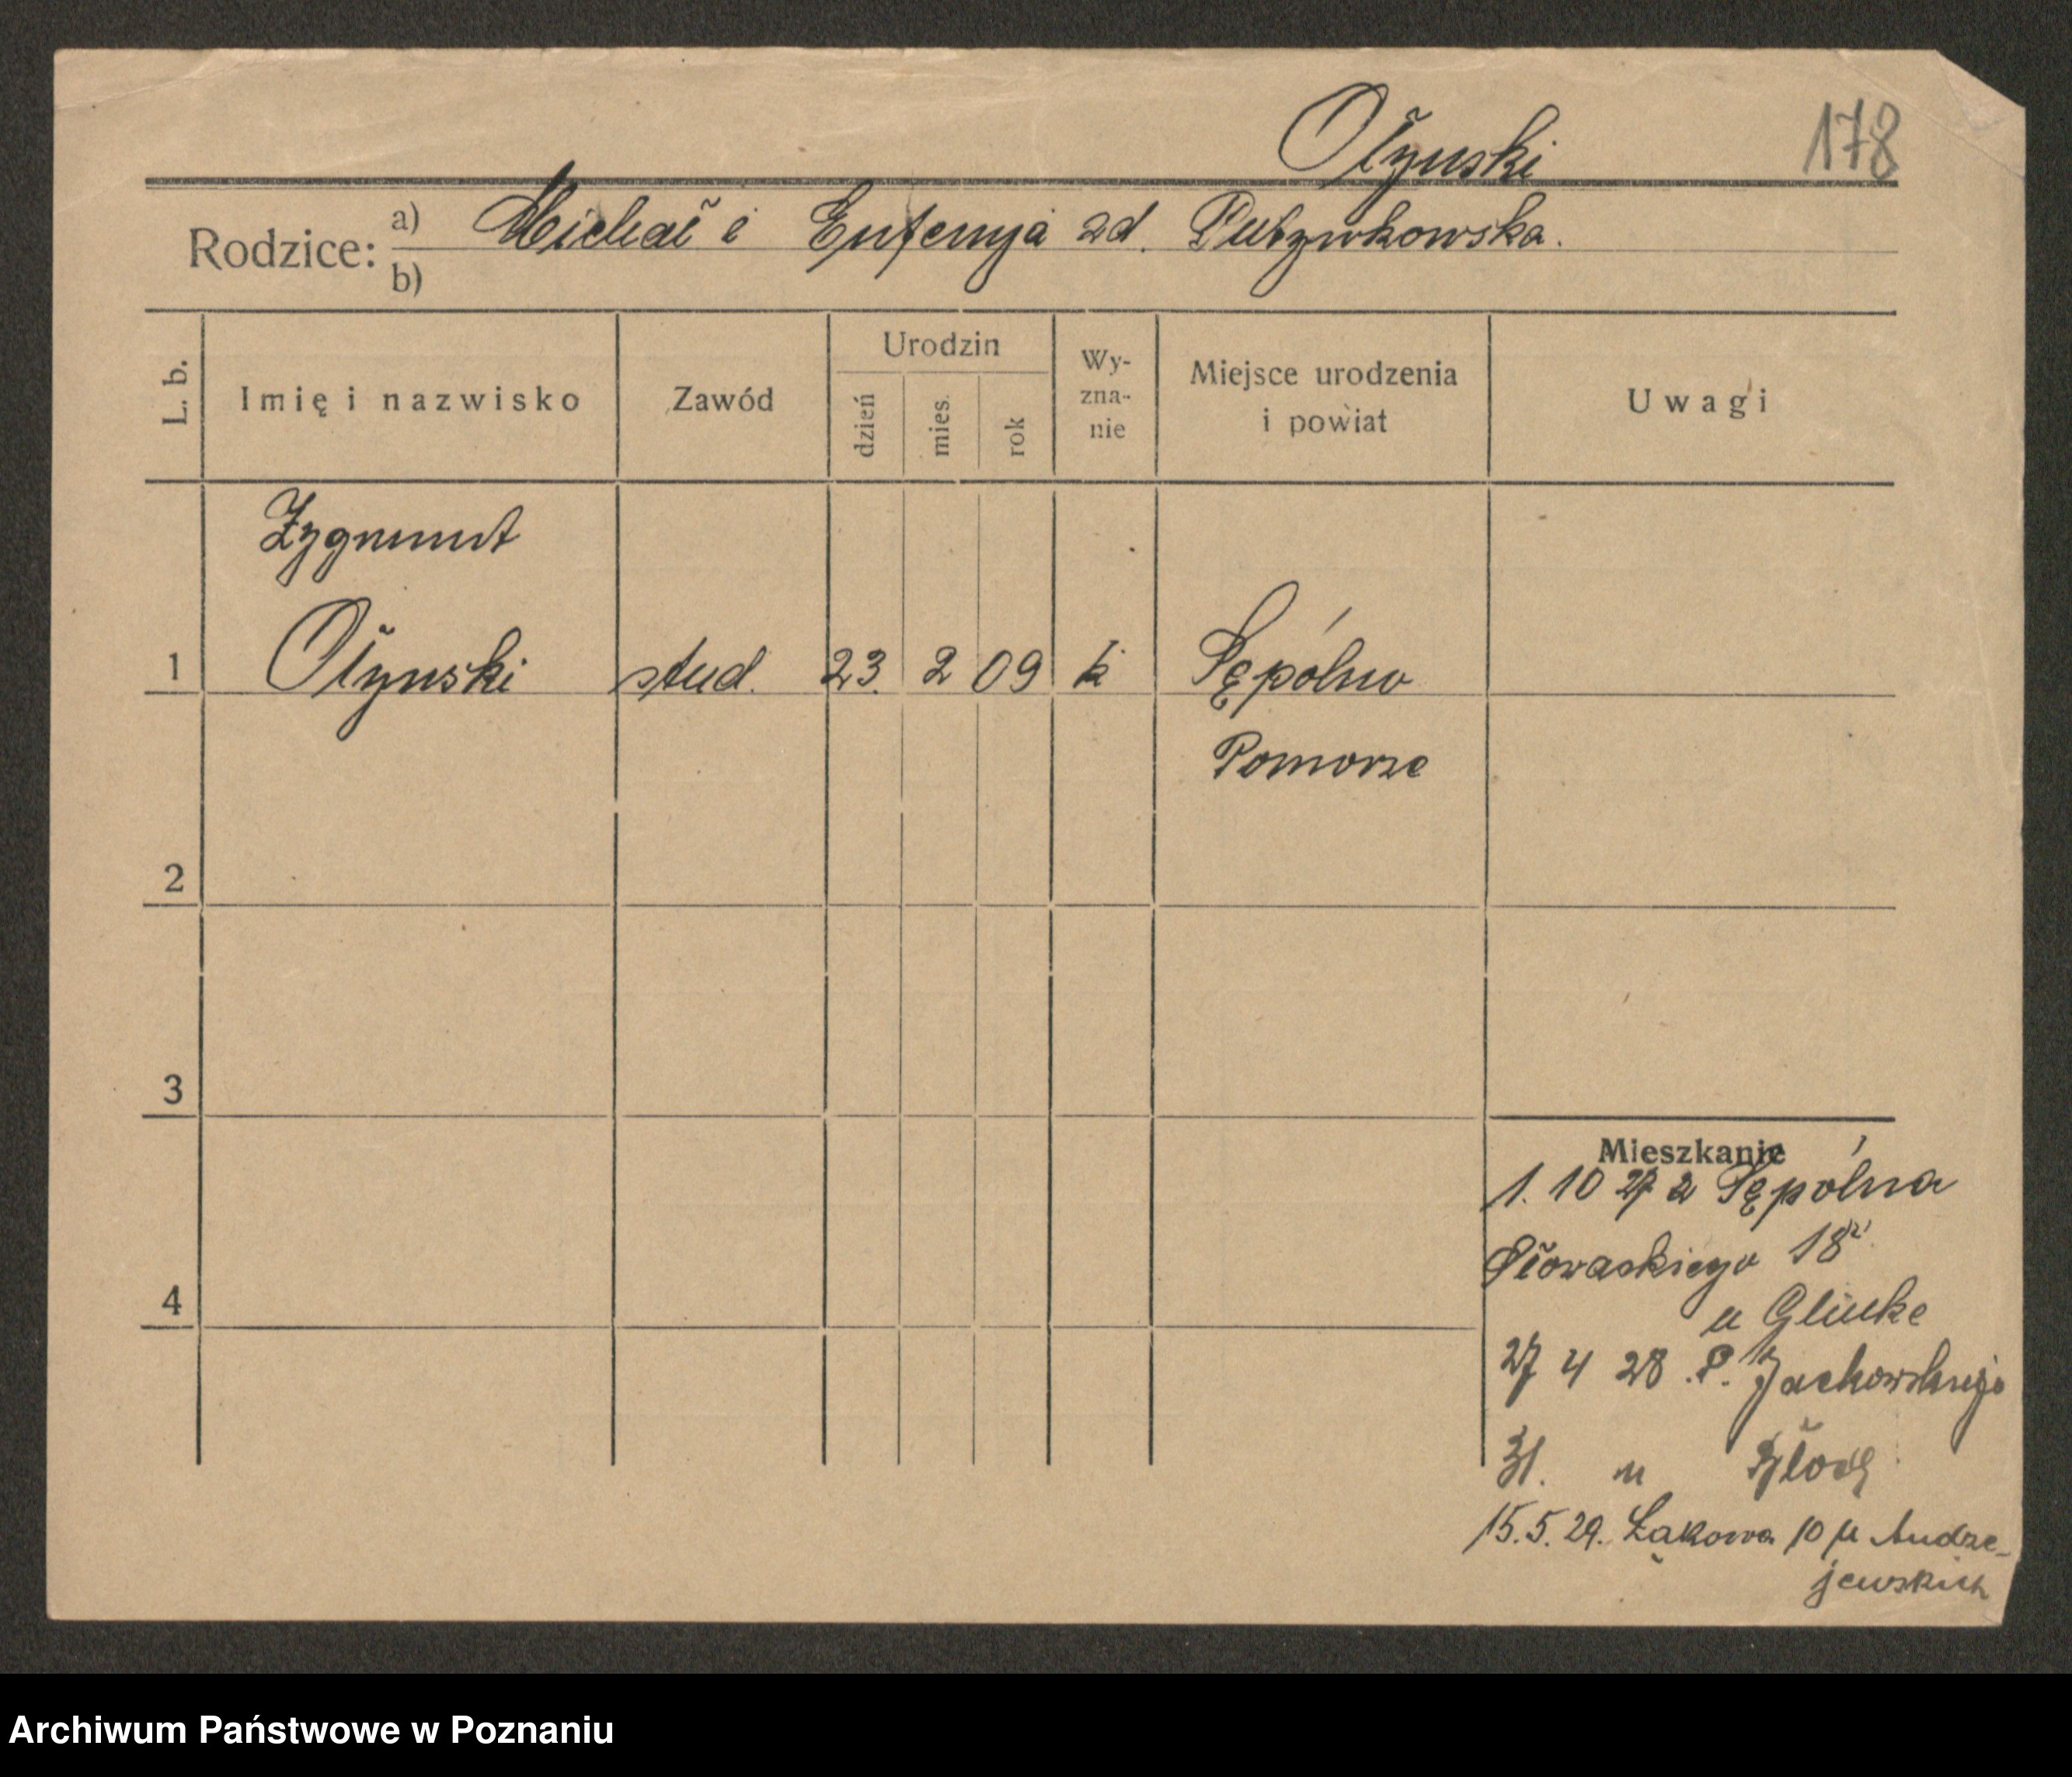 Ołynski
178
Rodzice: a) Michał i Eufemja zd.
b)
L. b.
Imię i nazwisko
Zawód
Urodzin
dzień
mies.
rok
Wy-
zna-
nie
Miejsce urodzenia
i powiat
Uwagi
Zygmunt
1 Ołynski stud. 23. 2 09 k Sępólno
Pomorze
2
3
4
Mieszkanie
1. 10 27 z Sępólna
Słowackiego 18
u Glinke
27 4 28 P. Jackowskiego
31. u
15.5.29. Łąkowa 10 u Andrze-
jewskich
Archiwum Państwowe w Poznaniu